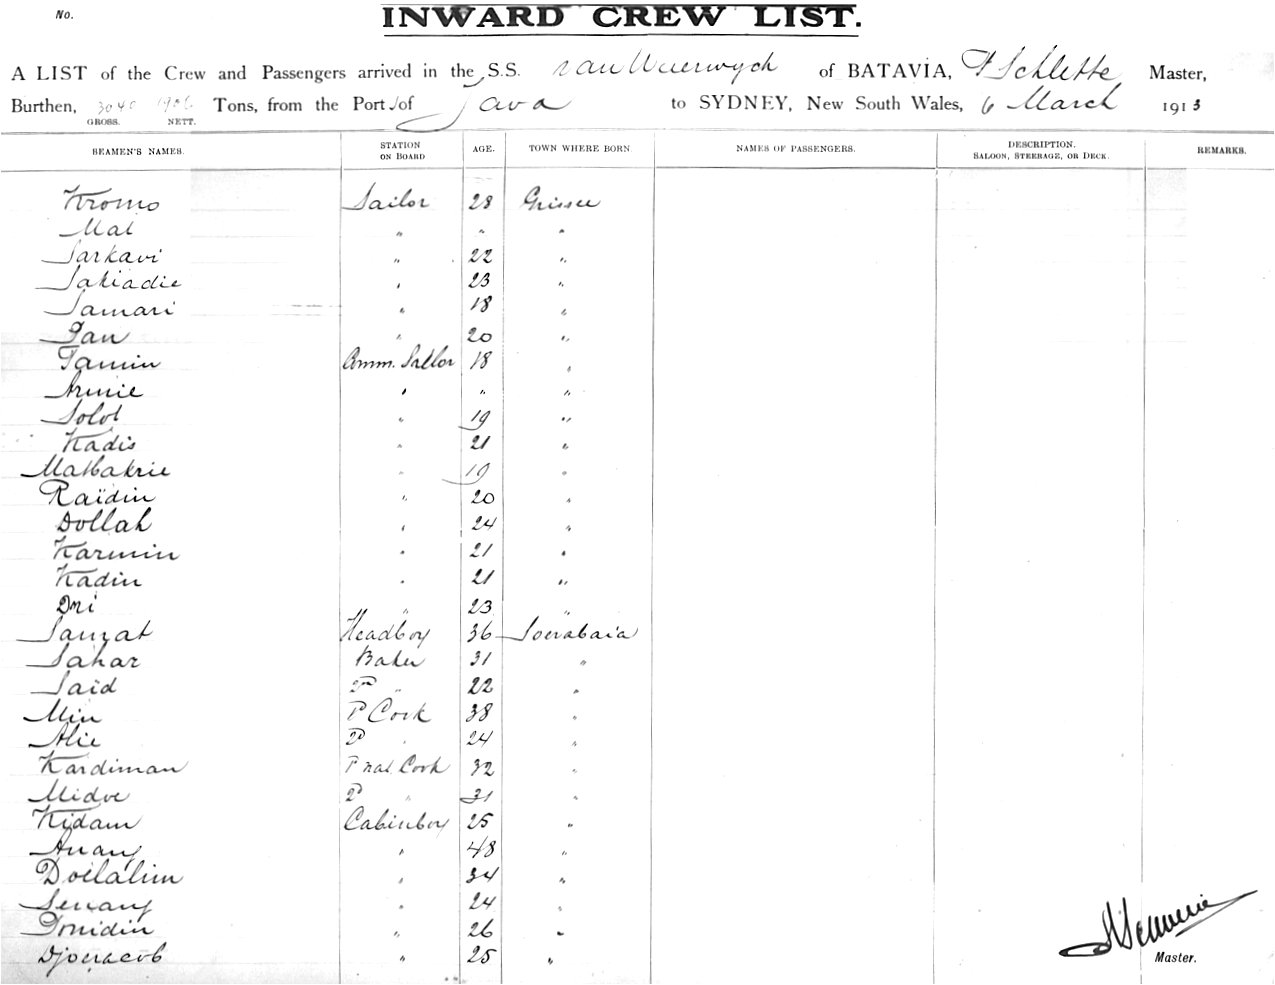 No.
INWARD CREW LIST.
A LIST of the Crew and Passengers arrived in the S.S. van Waerwyck of BATAVIA, F Schlette Master,
Burthen, 3040 1906 Tons, from the Port of Java to SYDNEY, New South Wales, 6 March 1913
GROSS. NETT.
SEAMEN'S NAMES. STATION ON BOARD AGE. TOWN WHERE BORN. NAMES OF PASSENGERS. DESCRIPTION. SALOON, STEERAGE, OR DECK. REMARKS.
Kromo Sailor 28 Grissee
Mat " " "
Sarkavi " 22 "
Sakiadie " 23 "
Samari " 18 "
Pan " 20 "
Tamin Comm. Sailor 18 "
Armie " " "
Solot " 19 "
Kadis " 21 "
Matbakrie " 19 "
Raïdin " 20 "
Dollah " 24 "
Karmin " 21 "
Kadin " 21 "
Dri " 23 "
Sanzat Headboy 36 Soerabaia
Sahar Baker 31 "
Saïd 2nd " 22 "
Min 1e Cook 38 "
Alie 2e " 24 "
Kardiman 1e nat. Cook 32 "
Midoe 2e " 31 "
Kidam Cabinboy 25 "
Anang " 48 "
Doelalim " 34 "
Senang " 24 "
Donidin " 26 "
Djoeacob " 25 "
Master.